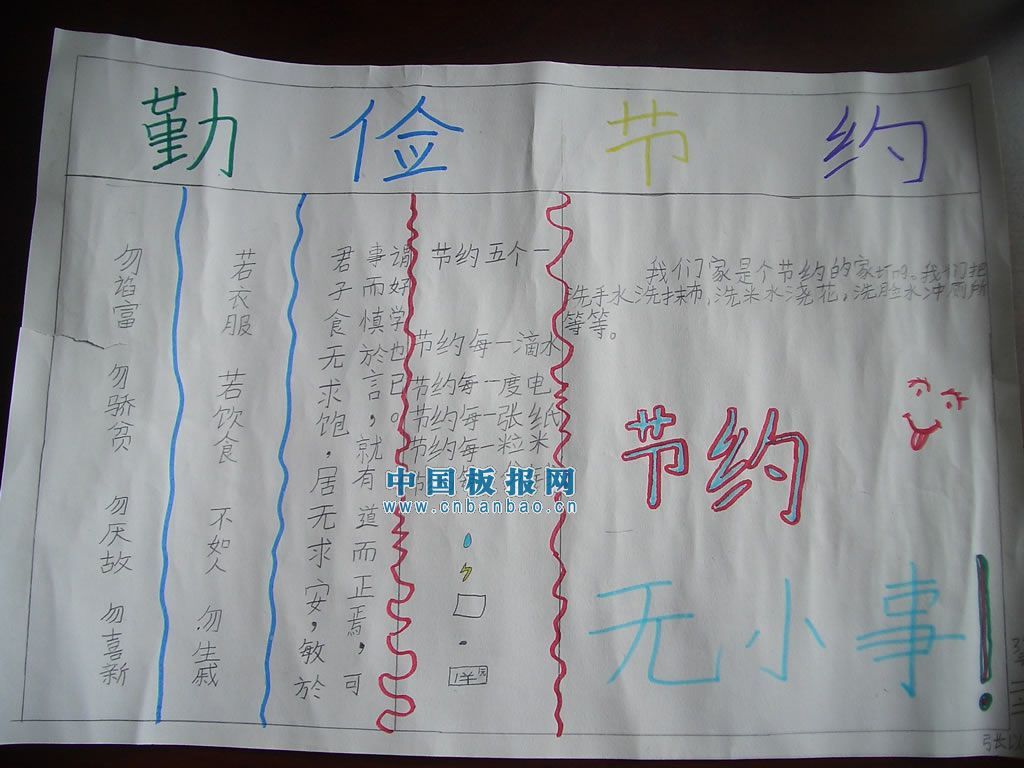 勤 俭 节 约
勿谄富 勿骄贫 勿厌故 勿喜新
若衣服 若饮食 不如人 勿生戚
君子食无求饱，居无求安，敏於
事而慎於言，就有道而正焉，可
谓好学也已。
节约五个一
节约每一滴水
节约每一度电
节约每一张纸
节约每一粒米
中国板报网
www.cnbanbao.cn
我们家是个节约的家
我们把
洗手水洗抹布，洗米水浇花，洗脸水冲厕所
等等。
节约
无小事！